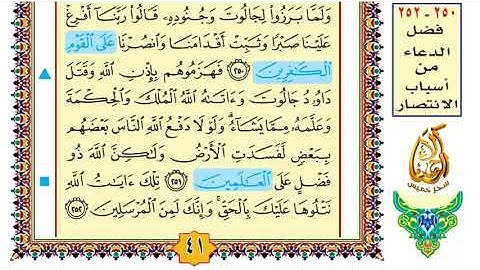 وَلَمَّا بَرَزُوا۟ لِجَالُوتَ وَجُنُودِهِۦ قَالُوا۟ رَبَّنَآ أَفْرِغْ
عَلَيْنَا صَبْرًا وَثَبِّتْ أَقْدَامَنَا وَٱنصُرْنَا عَلَى ٱلْقَوْمِ
ٱلْكَٰفِرِينَ ٢٥٠ فَهَزَمُوهُم بِإِذْنِ ٱللَّهِ وَقَتَلَ
دَاوُۥدُ جَالُوتَ وَءَاتَىٰهُ ٱللَّهُ ٱلْمُلْكَ وَٱلْحِكْمَةَ
وَعَلَّمَهُۥ مِمَّا يَشَآءُ ۗ وَلَوْلَا دَفْعُ ٱللَّهِ ٱلنَّاسَ بَعْضَهُم
بِبَعْضٍ لَّفَسَدَتِ ٱلْأَرْضُ وَلَٰكِنَّ ٱللَّهَ ذُو
فَضْلٍ عَلَى ٱلْعَٰلَمِينَ ٢٥١ تِلْكَ ءَايَٰتُ ٱللَّهِ
نَتْلُوهَا عَلَيْكَ بِٱلْحَقِّ ۚ وَإِنَّكَ لَمِنَ ٱلْمُرْسَلِينَ ٢٥٢
٤١
٢٥٠ - ٢٥٢
فضل
الدعاء
من
أسباب
الانتصار
سحر خميس